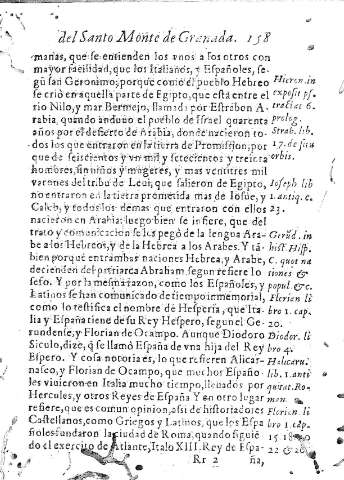 del Santo Monte de Granada. 158
manas, que se entienden los vnos a los otros con
mayor facilidad, que los Italianos, y Españoles, se-
gũ san Geronimo; porque como el pueblo Hebreo
se crió en aquella parte de Egipto, que está entre el
rio Nilo, y mar Bermejo, llamada por Estrabon A-
rabia, quando anduuo el pueblo de Israel quarenta
años por el desierto de Arabia, donde nacieron to-
dos los que entraron en la tierra de Promission, por
que de seiscientos y vn mil y setecientos y treinta
hombres, sin niños y mugeres, y mas veintitres mil
varones del tribu de Leui, que salieron de Egipto,
no entraron en la tierra prometida mas de Iosue, y
Caleb, y todos los demas que entraron con ellos
nacieron en Arabia: luego bien se infiere, que del
trato y comunicacion se les pegò de la lengua Ara-
be a los Hebreos, y de la Hebrea a los Arabes. Y tã-
bien porque entrambas naciones Hebrea, y Arabe,
decienden del patriarca Abraham segun refiere Io
sefo. Y por la mesma razon, como los Españoles, y
Latinos se han comunicado de tiempo inmemorial,
como lo testifica el nombre de Hesperia, que Ita-
lia y España tiene de su Rey Hespero, segunel Ge-
rundente, y Florian de Ocampo. Aunque Diodoro
Siculo, dize, q̃ se llamó España de vna hija del Rey
Espero. Y cosa notoria es, lo que refieren Alicar-
naseo, y Florian de Ocampo, que muchos Españo-
les viuieron en Italia mucho tiempo, lleuados por
Hercules, y otros Reyes de España Y en otro lugar
refiere, que es comun opinion, assi de historiadores
Castellanos, como Griegos y Latinos, que los Espa
ñoles fundaron la ciudad de Roma, quando siguiẽ
do el exercito de Atlante, Italo XIII. Rey de Espa-
Rr 2 ña,
Hieron. in
exposit. ps.
tractat. 6.
prolog.
Strab. lib.
17. de situ
orbis.
Ioseph lib
1. antiq. c.
23.
Gerũd. in
hist Hisp.
C. quot na
tiones &
popul. &c.
Florian li
bro 1. cap.
20.
Diodor. li
bro 4.
Halicarn.
lib. 1. anti
quitat. Ro-
man
Florian li
bro 1. cap.
22 & 26